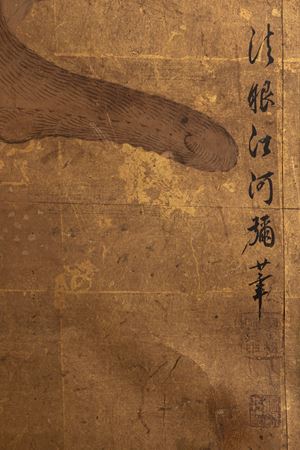 法眼江河彌筆